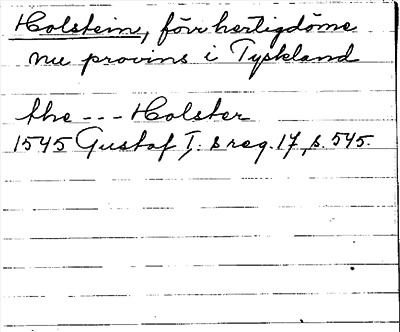 Holstein, förr hertigdöme
nu provins i Tyskland
the --- Holster
1545 Gustaf I:s reg. 17, s. 545.